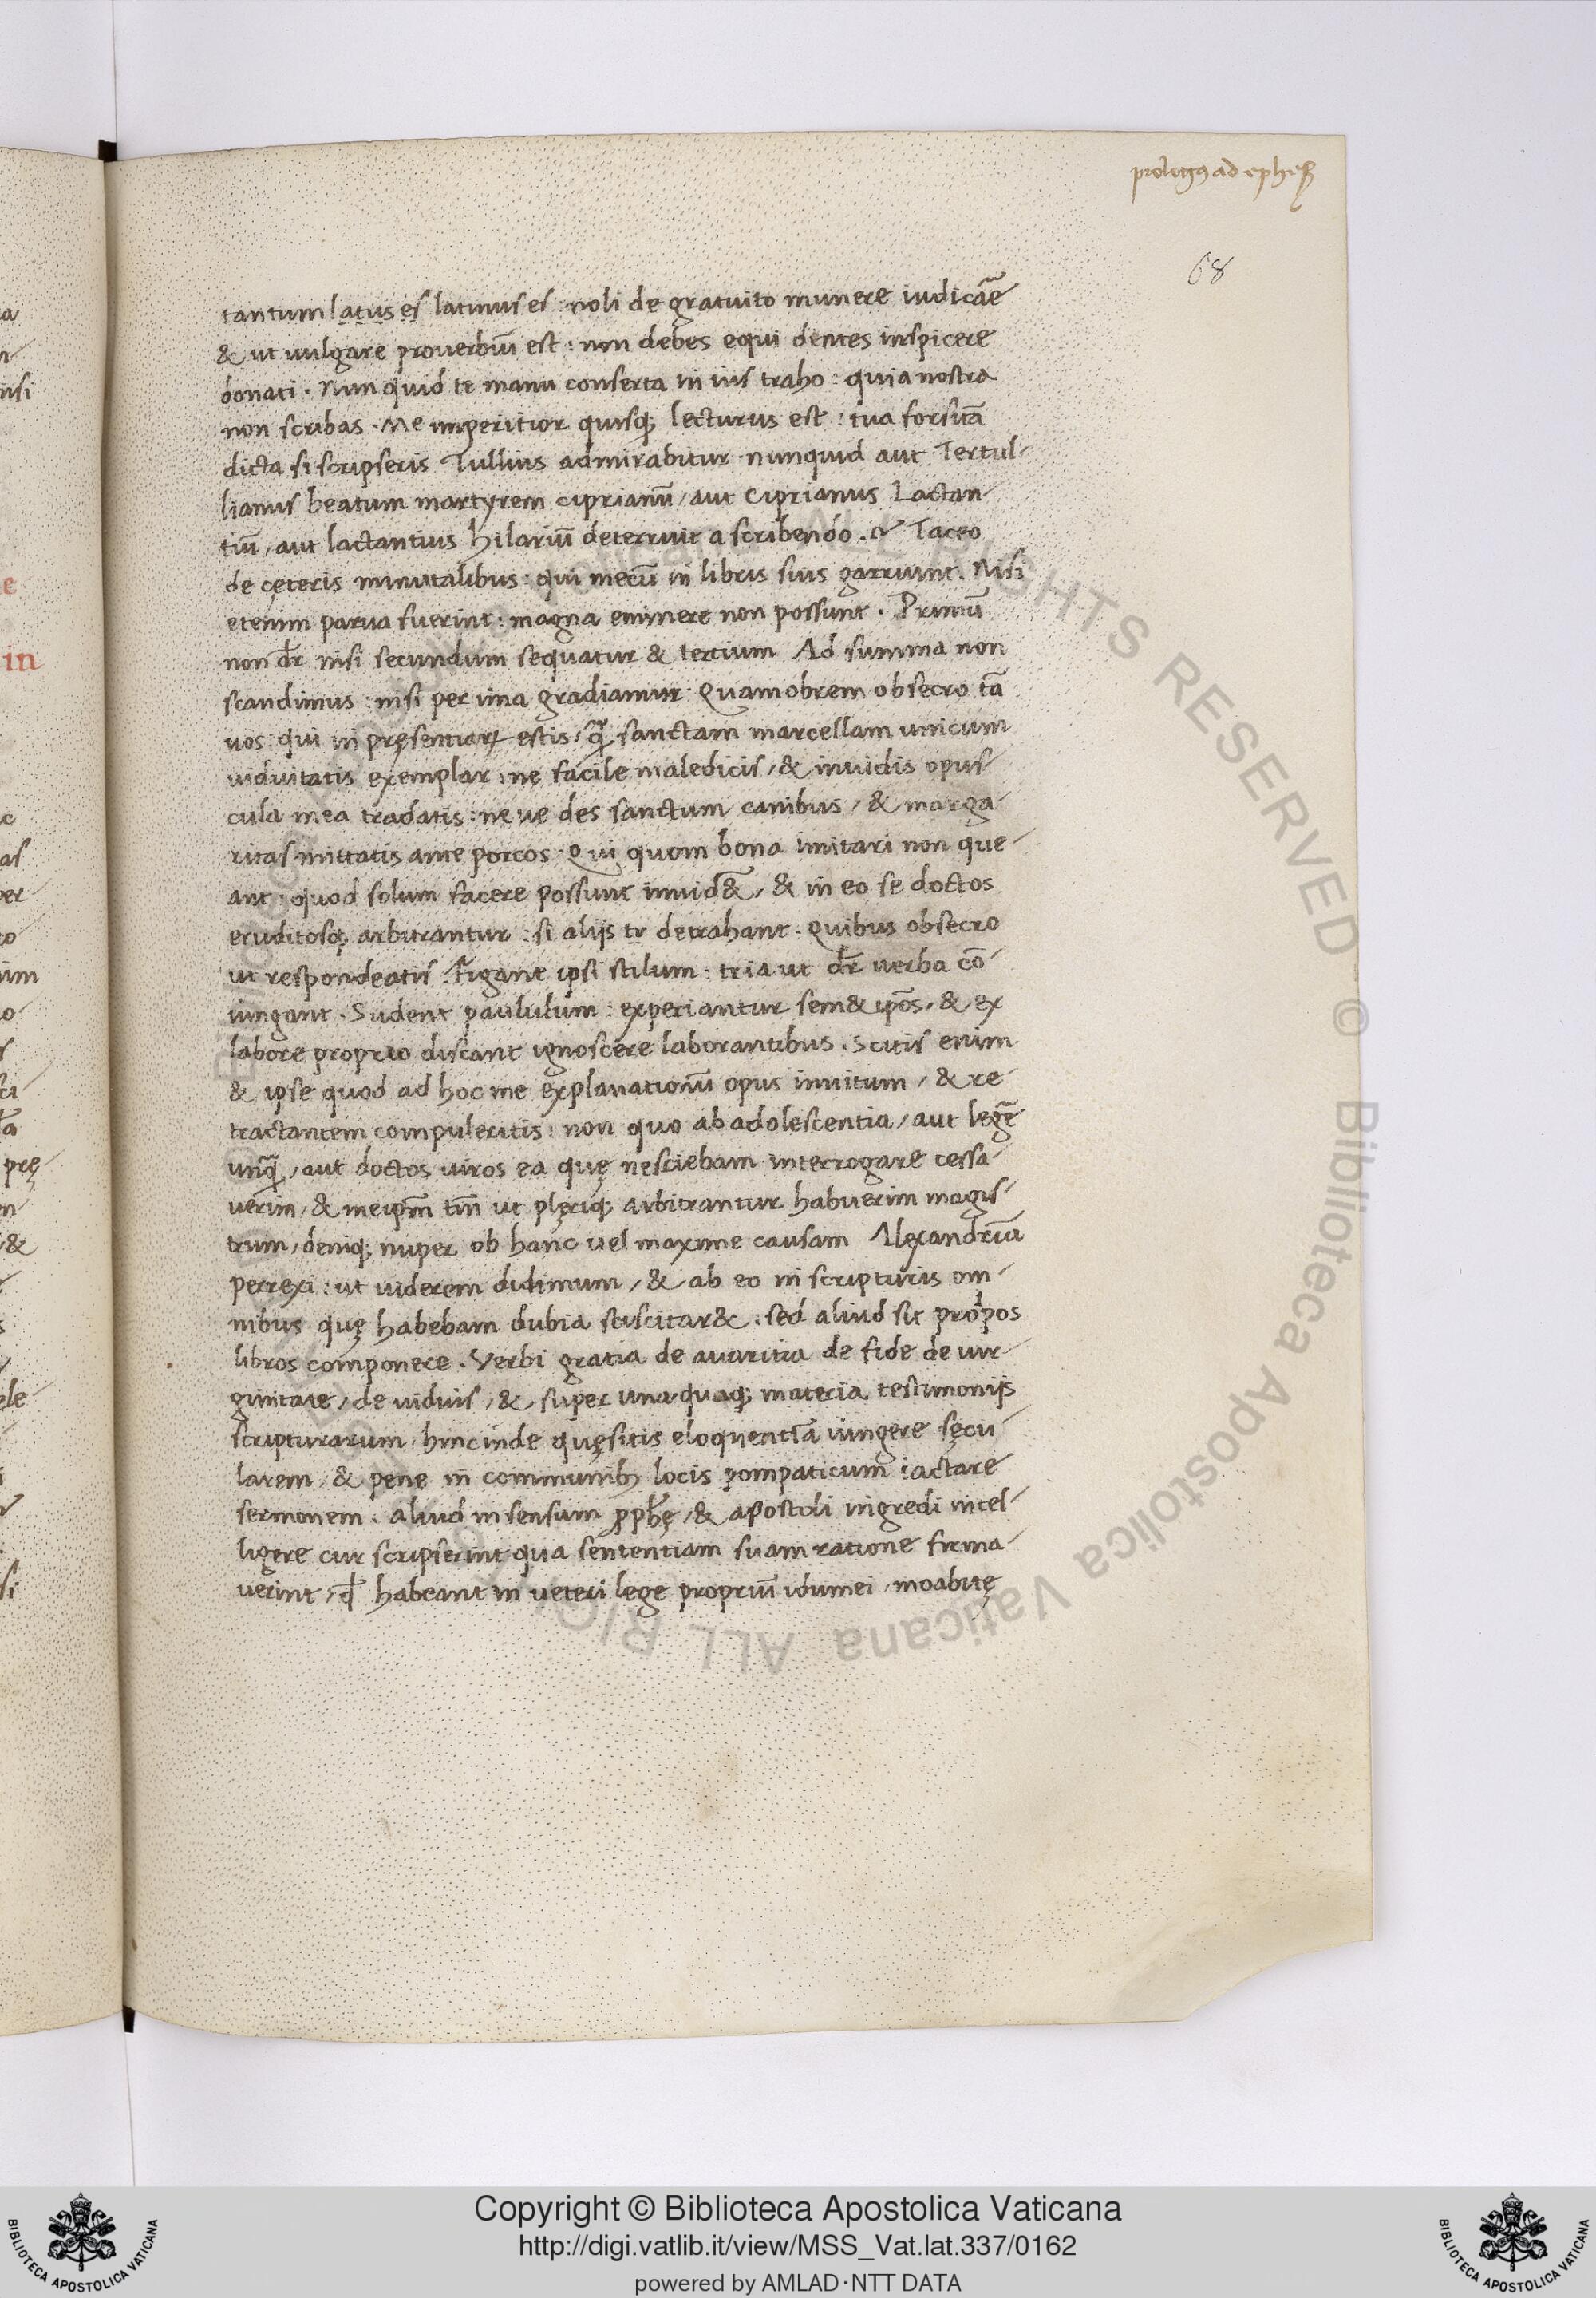 prologꝰ ad epheſ
68
tantum latus es latinus es : noli de gratuito munere iudicāe
& ut uulgare prouerbiū est : non debes equi dentes inspicere
donati . Nun quid te manu conserta in ius traho : quia nostra
non scribas . Me imperitior quisq; lecturus est : tua forsitā
dicta si scripseris Tullius admirabitur . nunquid aut Tertul-
lianus beatum martyrem ciprianū / aut Ciprianus Lactan-
tiū , aut lactantius hilariū deterruit a scribendo . Taceo
de cęteris minutalibus : qui mecū in libris suis garriunt . Nisi
etenim parua fuerint : magna eminere non possunt . Primū
non dr̄ nisi secundum sequatur & tertium Ad summa non
scandimus : nisi per ima gradiamur . Quamobrem obsecro tā
uos : qui in pręsentiarꝝ estis , q̄ sanctam marcellam unicum
uiduitatis exemplar : ne facile maledicis , & inuidis opus-
cula mea tradatis : ne ue des sanctum canibus , & marga-
ritas mittatis ante porcos . Qui quom bona imitari non que-
ant : quod solum facere possunt inuid& , & in eo se doctos
eruditosq; arbitrantur : si alijs tr detrahant . Quibus obsecro
ut respondeatis . Figant ipsi stilum : tria ut dr̄ uerba cō-
iungant . Sudent paululum : experiantur sem& ip̄os , & ex
labore proprio discant ignoscere laborantibus . Scitis enim
& ipse quod ad hoc me explanationū opus inuitum , & re-
tractantem compuleritis : non quo ab adolescentia , aut legē
unq̄ , aut doctos uiros ea quę nesciebam interrogare cessa-
uerim , & meip̄m tm̄ ut plęriq; arbitrantur habuerim magis-
trum , deniq; nuper ob hanc uel maxime causam Alexandriā
perrexi : ut uiderem didimum , & ab eo in scripturis om-
nibus quę habebam dubia sciscitar& : sed aliud sit proṗos
libros componere . Verbi gratia de auaritia de fide de uir-
ginitate , de uiduis , & super una quaq; materia testimonijs
scripturarum hinc inde quęsitis eloquentiā iungere sęcu-
larem , & pene in communib; locis pompaticum iactare
sermonem . aliud in sensum ꝓph̄ę , & apostoli ingredi intel-
ligere cur scripserint qua sententiam suam ratione firma-
uerint , qd̄ habeant in ueteri lege propriū idumei , moabitę
Copyright © Biblioteca Apostolica Vaticana
http://digi.vatlib.it/view/MSS_Vat.lat.337/0162
powered by AMLAD·NTT DATA